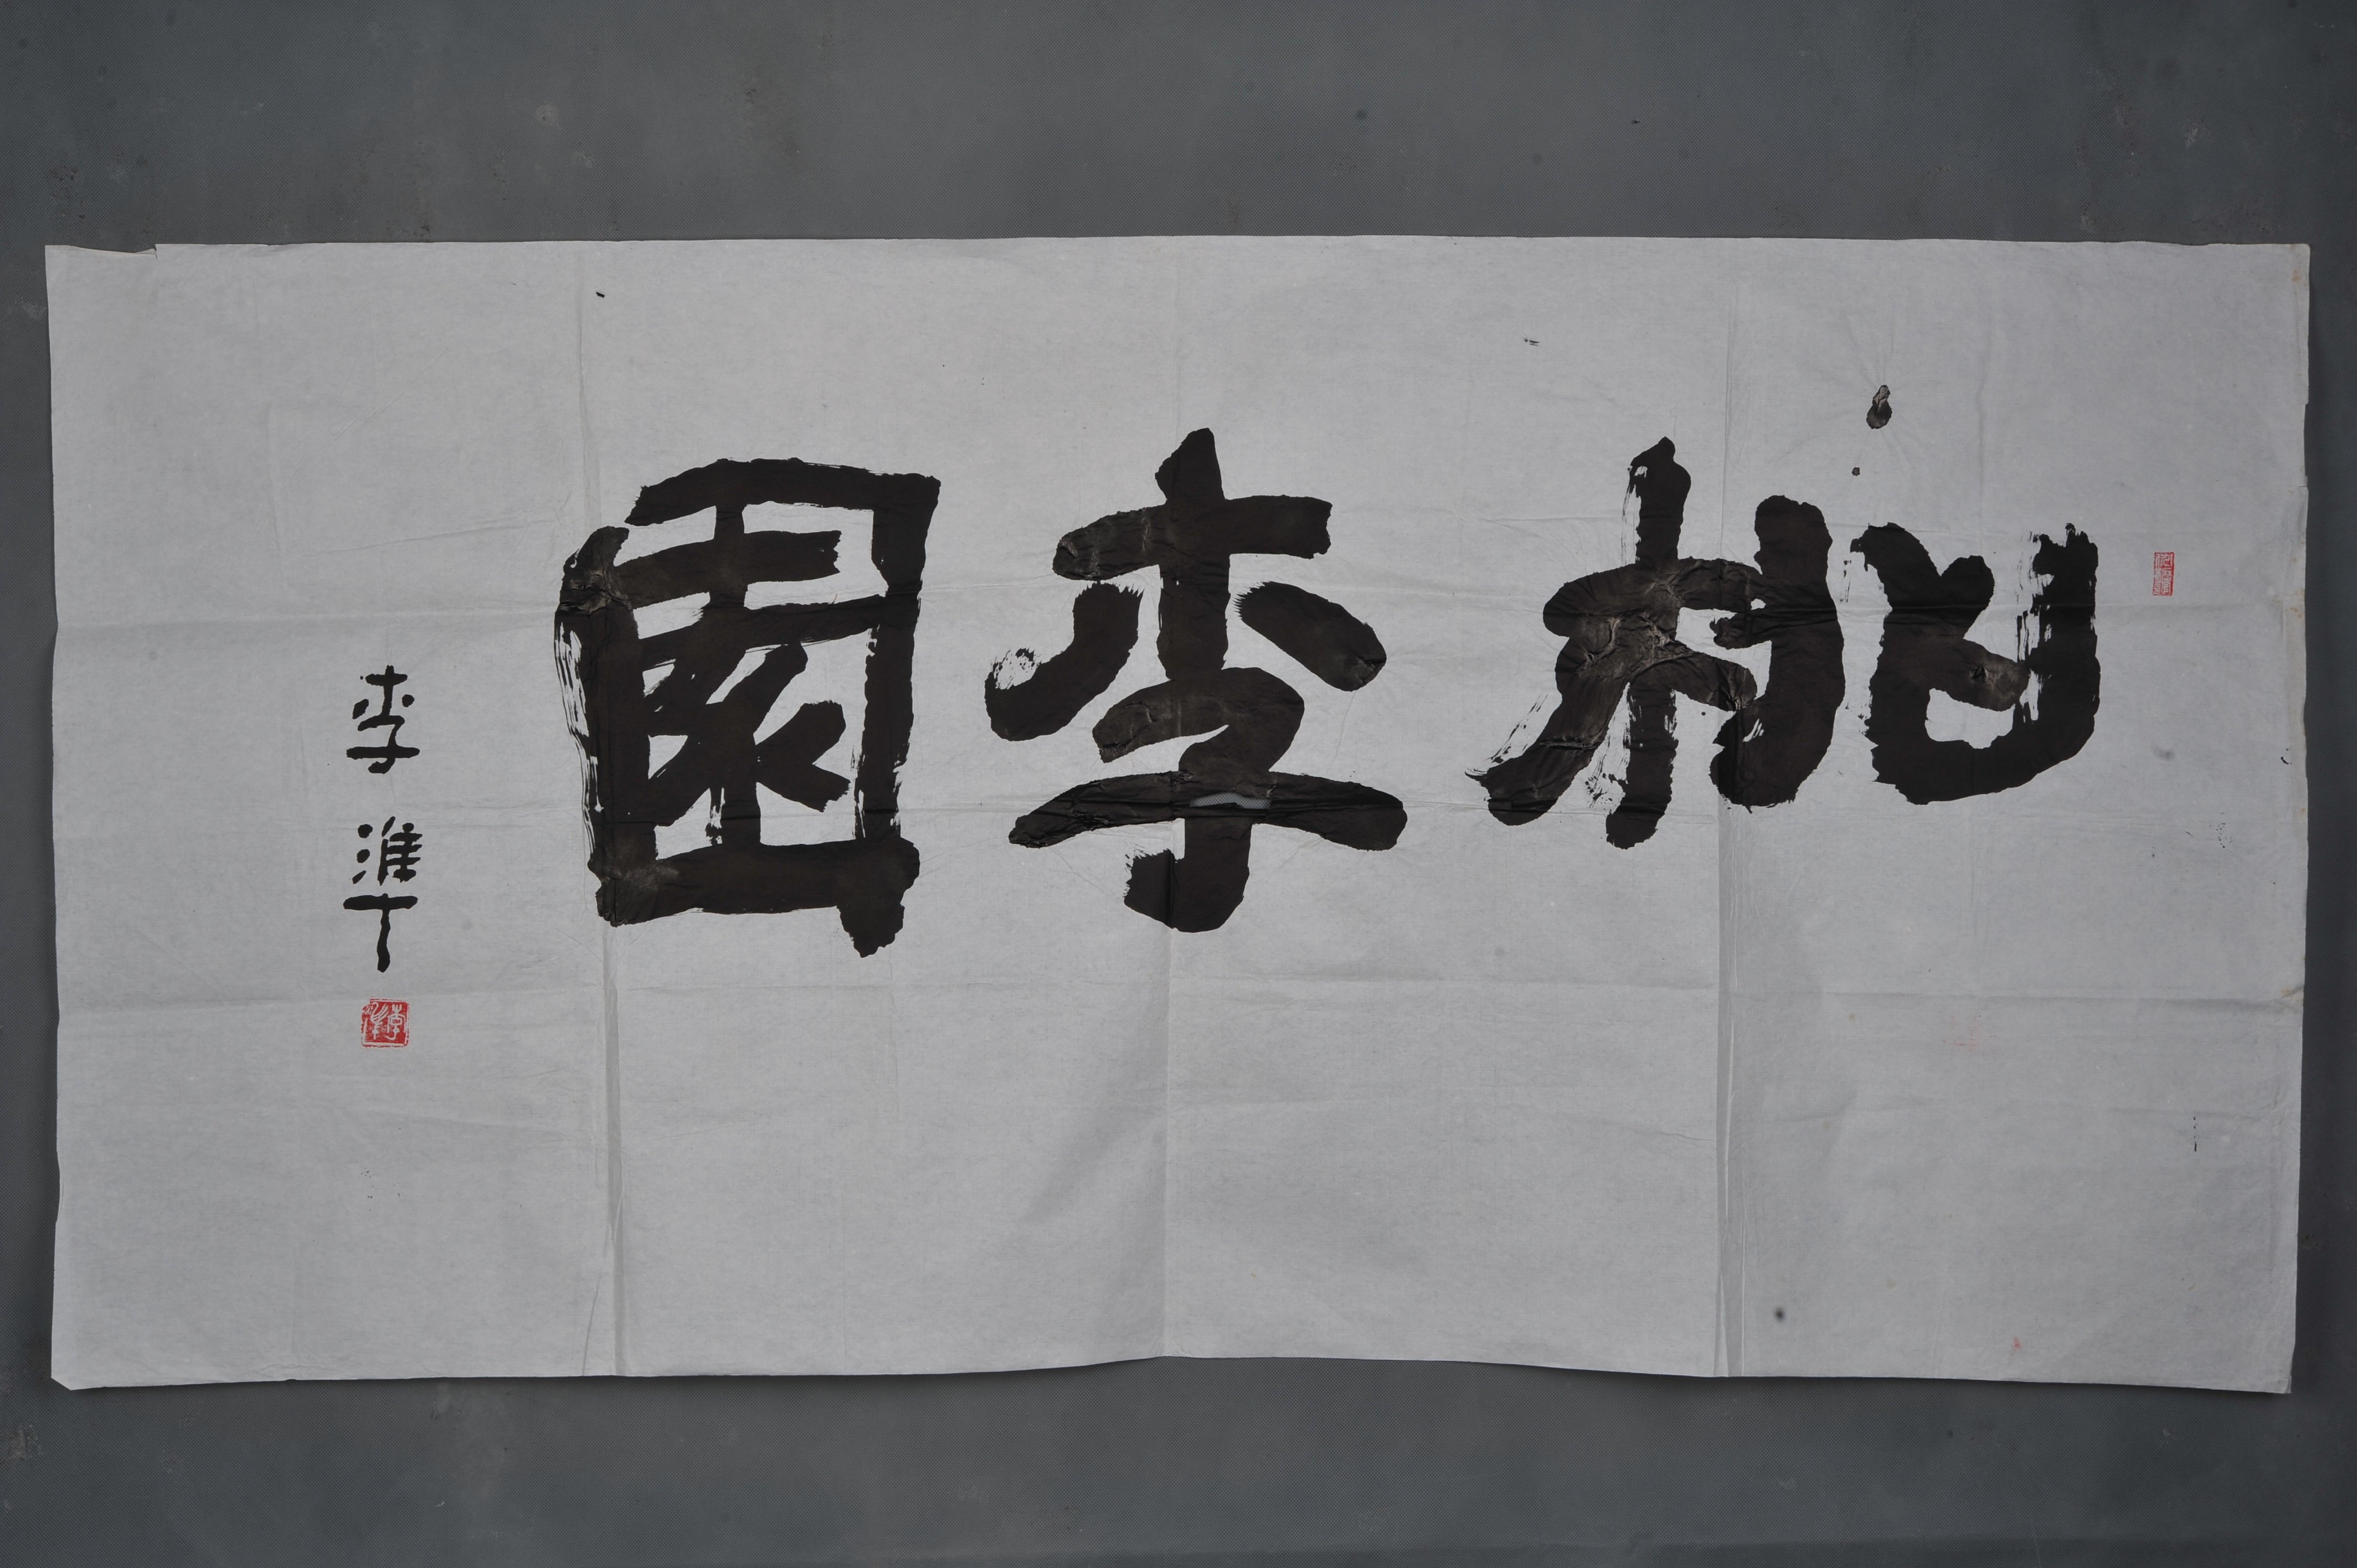 桃李園
李準